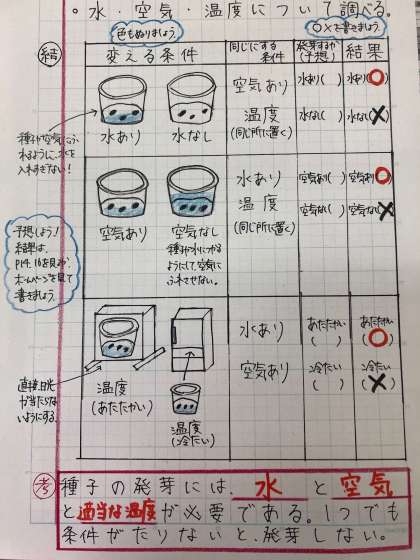 。水・空気・温度について調べる。
色もぬりましょう
○×を書きましょう。
結
変える条件
同じにする条件
発芽するか(予想)
結果
水あり
水なし
空気あり
温度
(同じ所に置く)
水あり( )
水なし( )
水あり○
水なし×
種子が空気にふ
れるように、水を
入れすぎない!
空気あり
空気なし
種子が水につかる
ようにして、空気に
ふれさせない。
水あり
温度
(同じ所に置く)
空気あり( )
空気なし( )
空気あり○
空気なし×
予想しよう!
結果は、
ホームページを見て
書きましょう。
直接日光
が当たらな
いようにする。
温度
(あたたかい)
温度
(冷たい)
水あり
空気あり
あたたかい
( )
冷たい
( )
あたたかい
○
冷たい
×
考
種子の発芽には、水と空気
と適当な温度が必要である。1つでも
条件がたりないと、発芽しない。